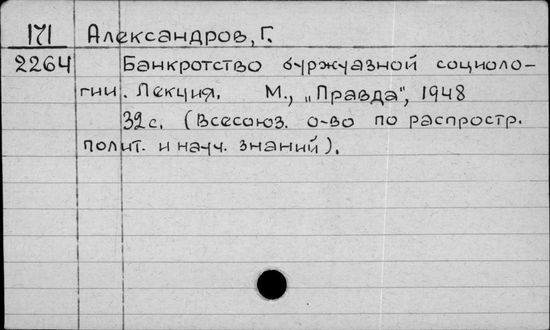 171 Александров, Г.
2264 Банкротство буржуазной социоло-
гии. Лекция. М., „Правда", 1948
32 с. (Всесоюз. о-во по распростр.
полит. и науч. знаний).